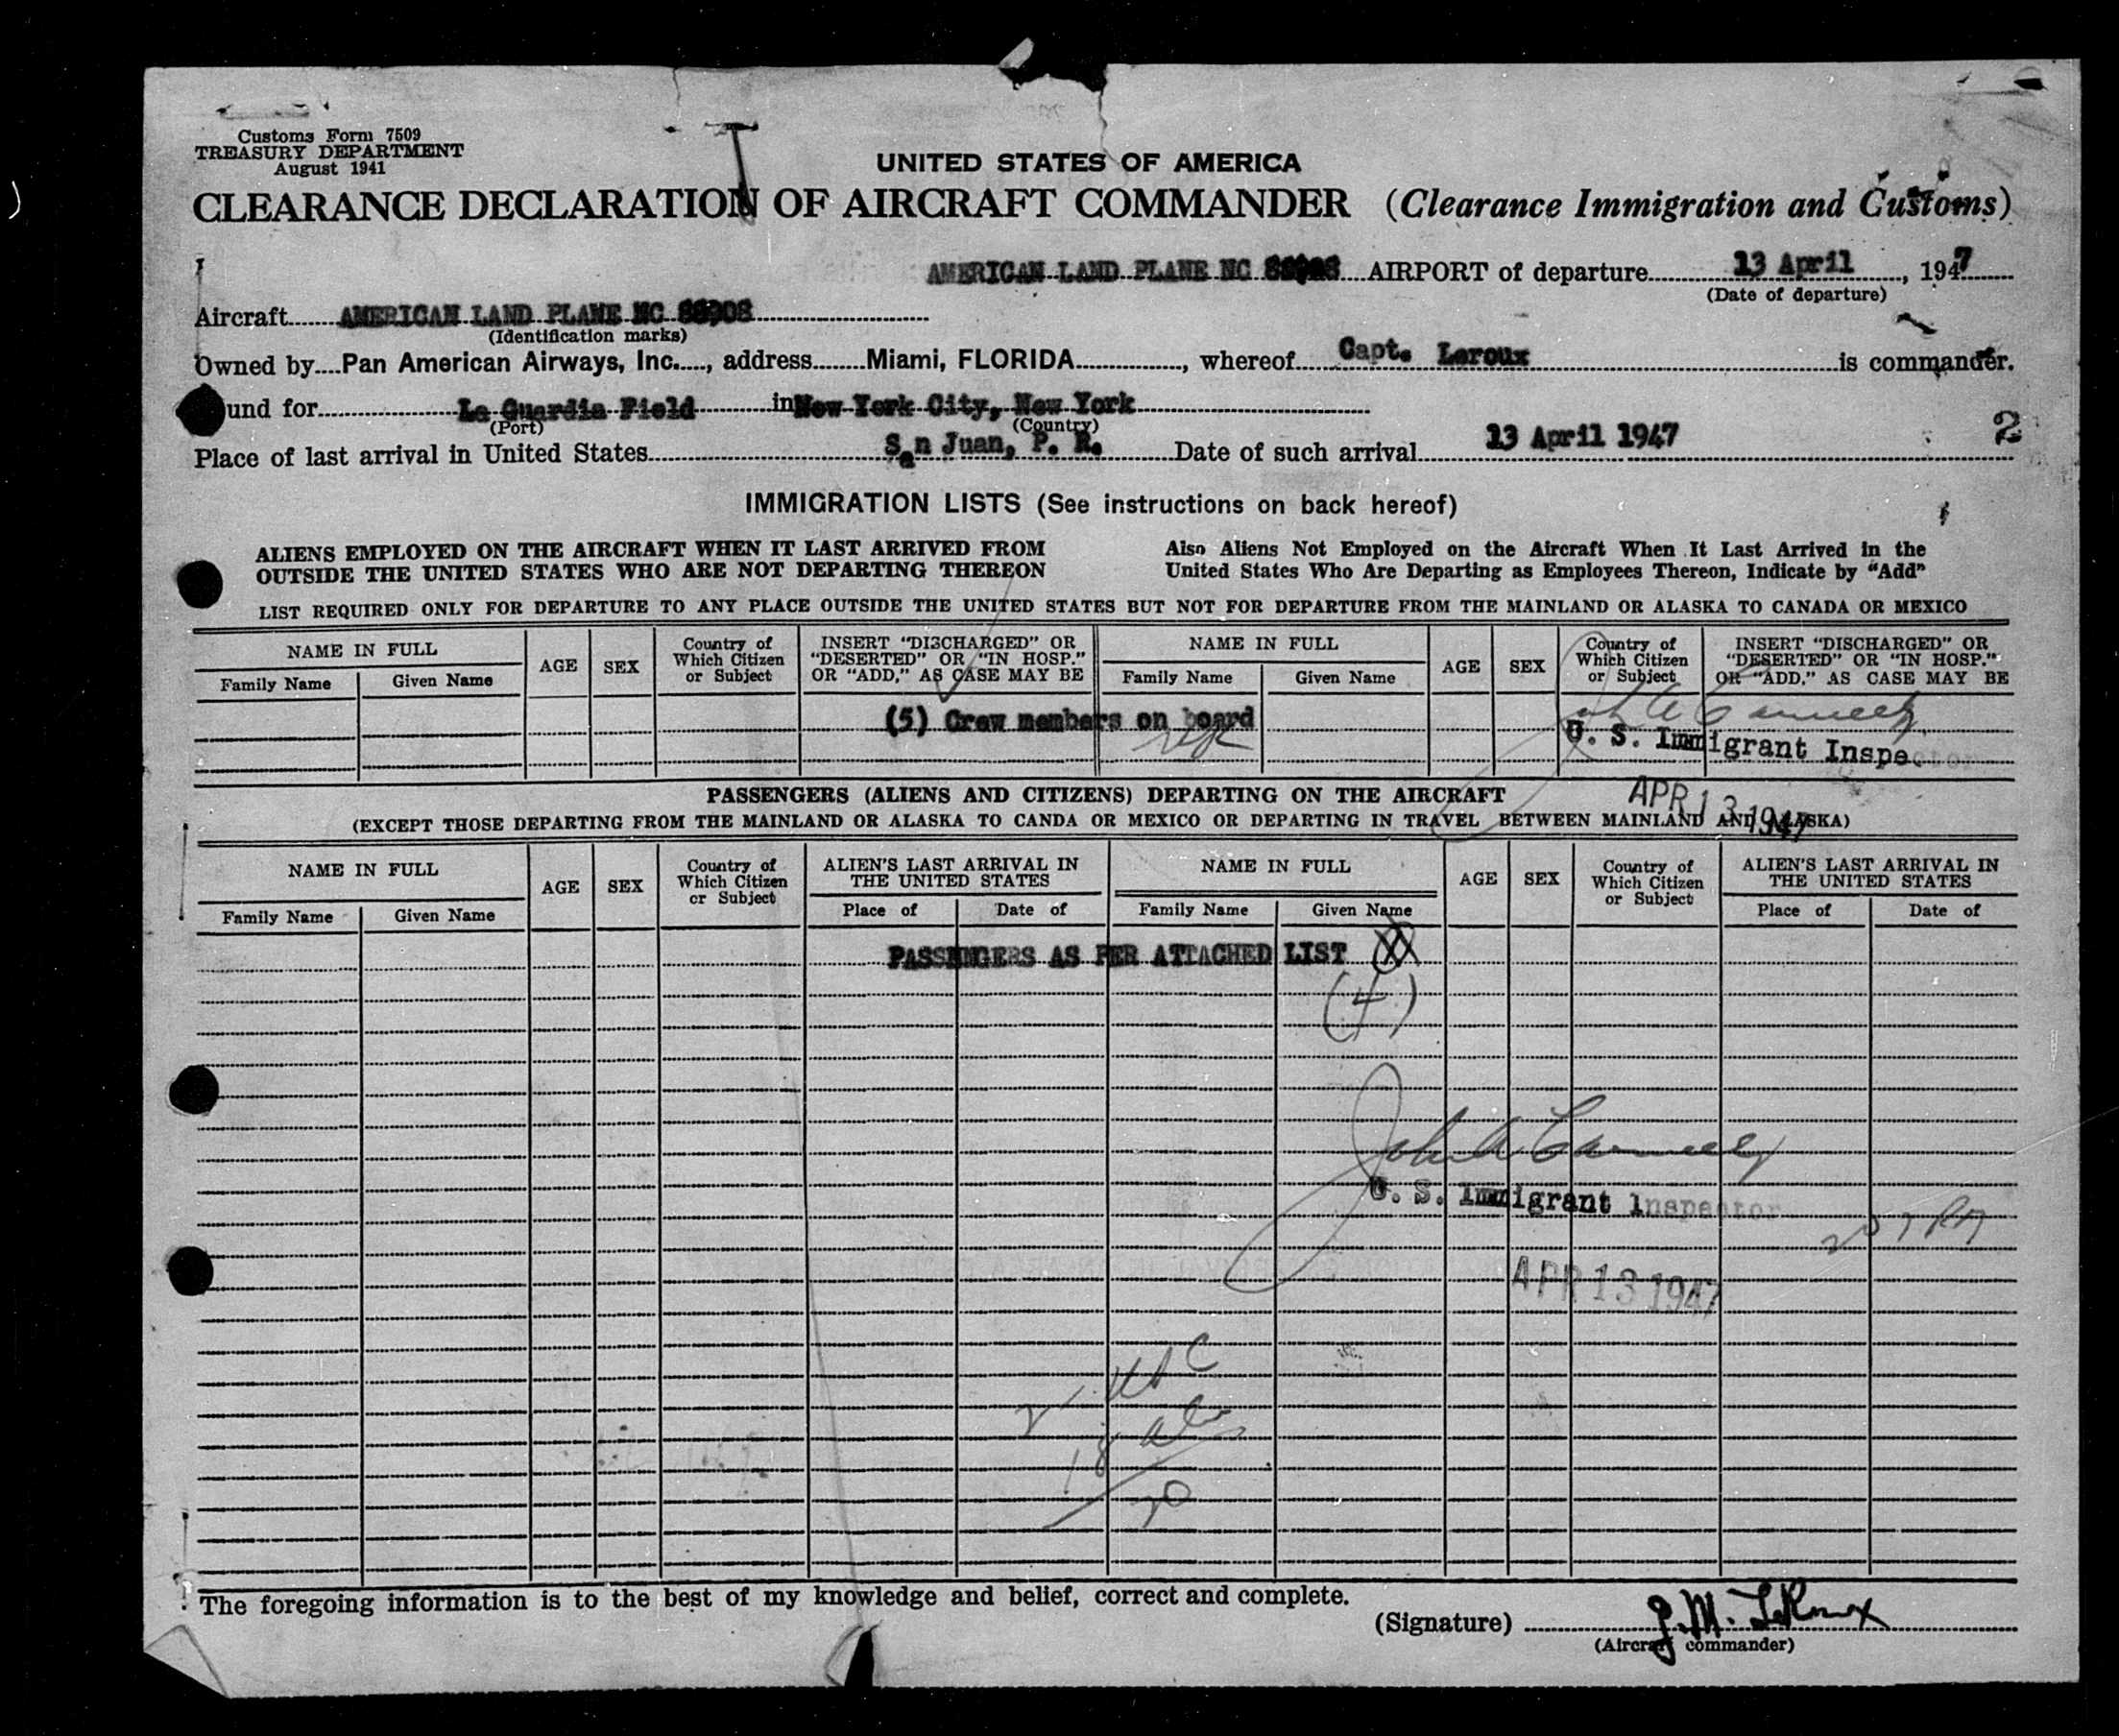 Customs Form 7509
TREASURY DEPARTMENT
August 1941
UNITED STATES OF AMERICA
CLEARANCE DECLARATION OF AIRCRAFT COMMANDER (Clearance Immigration and Customs)
AMERICAN LAND PLANE NC AIRPORT of departure 13 April, 1947
(Date of departure)
Aircraft AMERICAN LAND PLANE NC
(Identification marks)
Owned by Pan American Airways, Inc., address Miami, FLORIDA, whereof Capt. Leroux is commander.
und for La Guardia Field in New York City, New York
(Port) (Country)
Place of last arrival in United States San Juan, P. R. Date of such arrival 13 April 1947 2
IMMIGRATION LISTS (See instructions on back hereof)
ALIENS EMPLOYED ON THE AIRCRAFT WHEN IT LAST ARRIVED FROM
OUTSIDE THE UNITED STATES WHO ARE NOT DEPARTING THEREON
Also Aliens Not Employed on the Aircraft When It Last Arrived in the
United States Who Are Departing as Employees Thereon, Indicate by "Add"
LIST REQUIRED ONLY FOR DEPARTURE TO ANY PLACE OUTSIDE THE UNITED STATES BUT NOT FOR DEPARTURE FROM THE MAINLAND OR ALASKA TO CANADA OR MEXICO
NAME IN FULL
Family Name Given Name
AGE
SEX
Country of
Which Citizen
or Subject
INSERT "DISCHARGED" OR
"DESERTED" OR "IN HOSP."
OR "ADD," AS CASE MAY BE
NAME IN FULL
Family Name Given Name
AGE
SEX
Country of
Which Citizen
or Subject
INSERT "DISCHARGED" OR
"DESERTED" OR "IN HOSP."
OR "ADD," AS CASE MAY BE
(5) Crew members on board
U. S. Immigrant Inspector
APR 13 1947
PASSENGERS (ALIENS AND CITIZENS) DEPARTING ON THE AIRCRAFT
(EXCEPT THOSE DEPARTING FROM THE MAINLAND OR ALASKA TO CANDA OR MEXICO OR DEPARTING IN TRAVEL BETWEEN MAINLAND AND ALASKA)
NAME IN FULL
Family Name Given Name
AGE
SEX
Country of
Which Citizen
or Subject
ALIEN'S LAST ARRIVAL IN
THE UNITED STATES
Place of Date of
NAME IN FULL
Family Name Given Name
AGE
SEX
Country of
Which Citizen
or Subject
ALIEN'S LAST ARRIVAL IN
THE UNITED STATES
Place of Date of
PASSENGERS AS PER ATTACHED LIST
(4)
John A
U. S. Immigrant Inspector
APR 13 1947
18
20
The foregoing information is to the best of my knowledge and belief, correct and complete.
(Signature) J. M. LeRoux
(Aircraft commander)